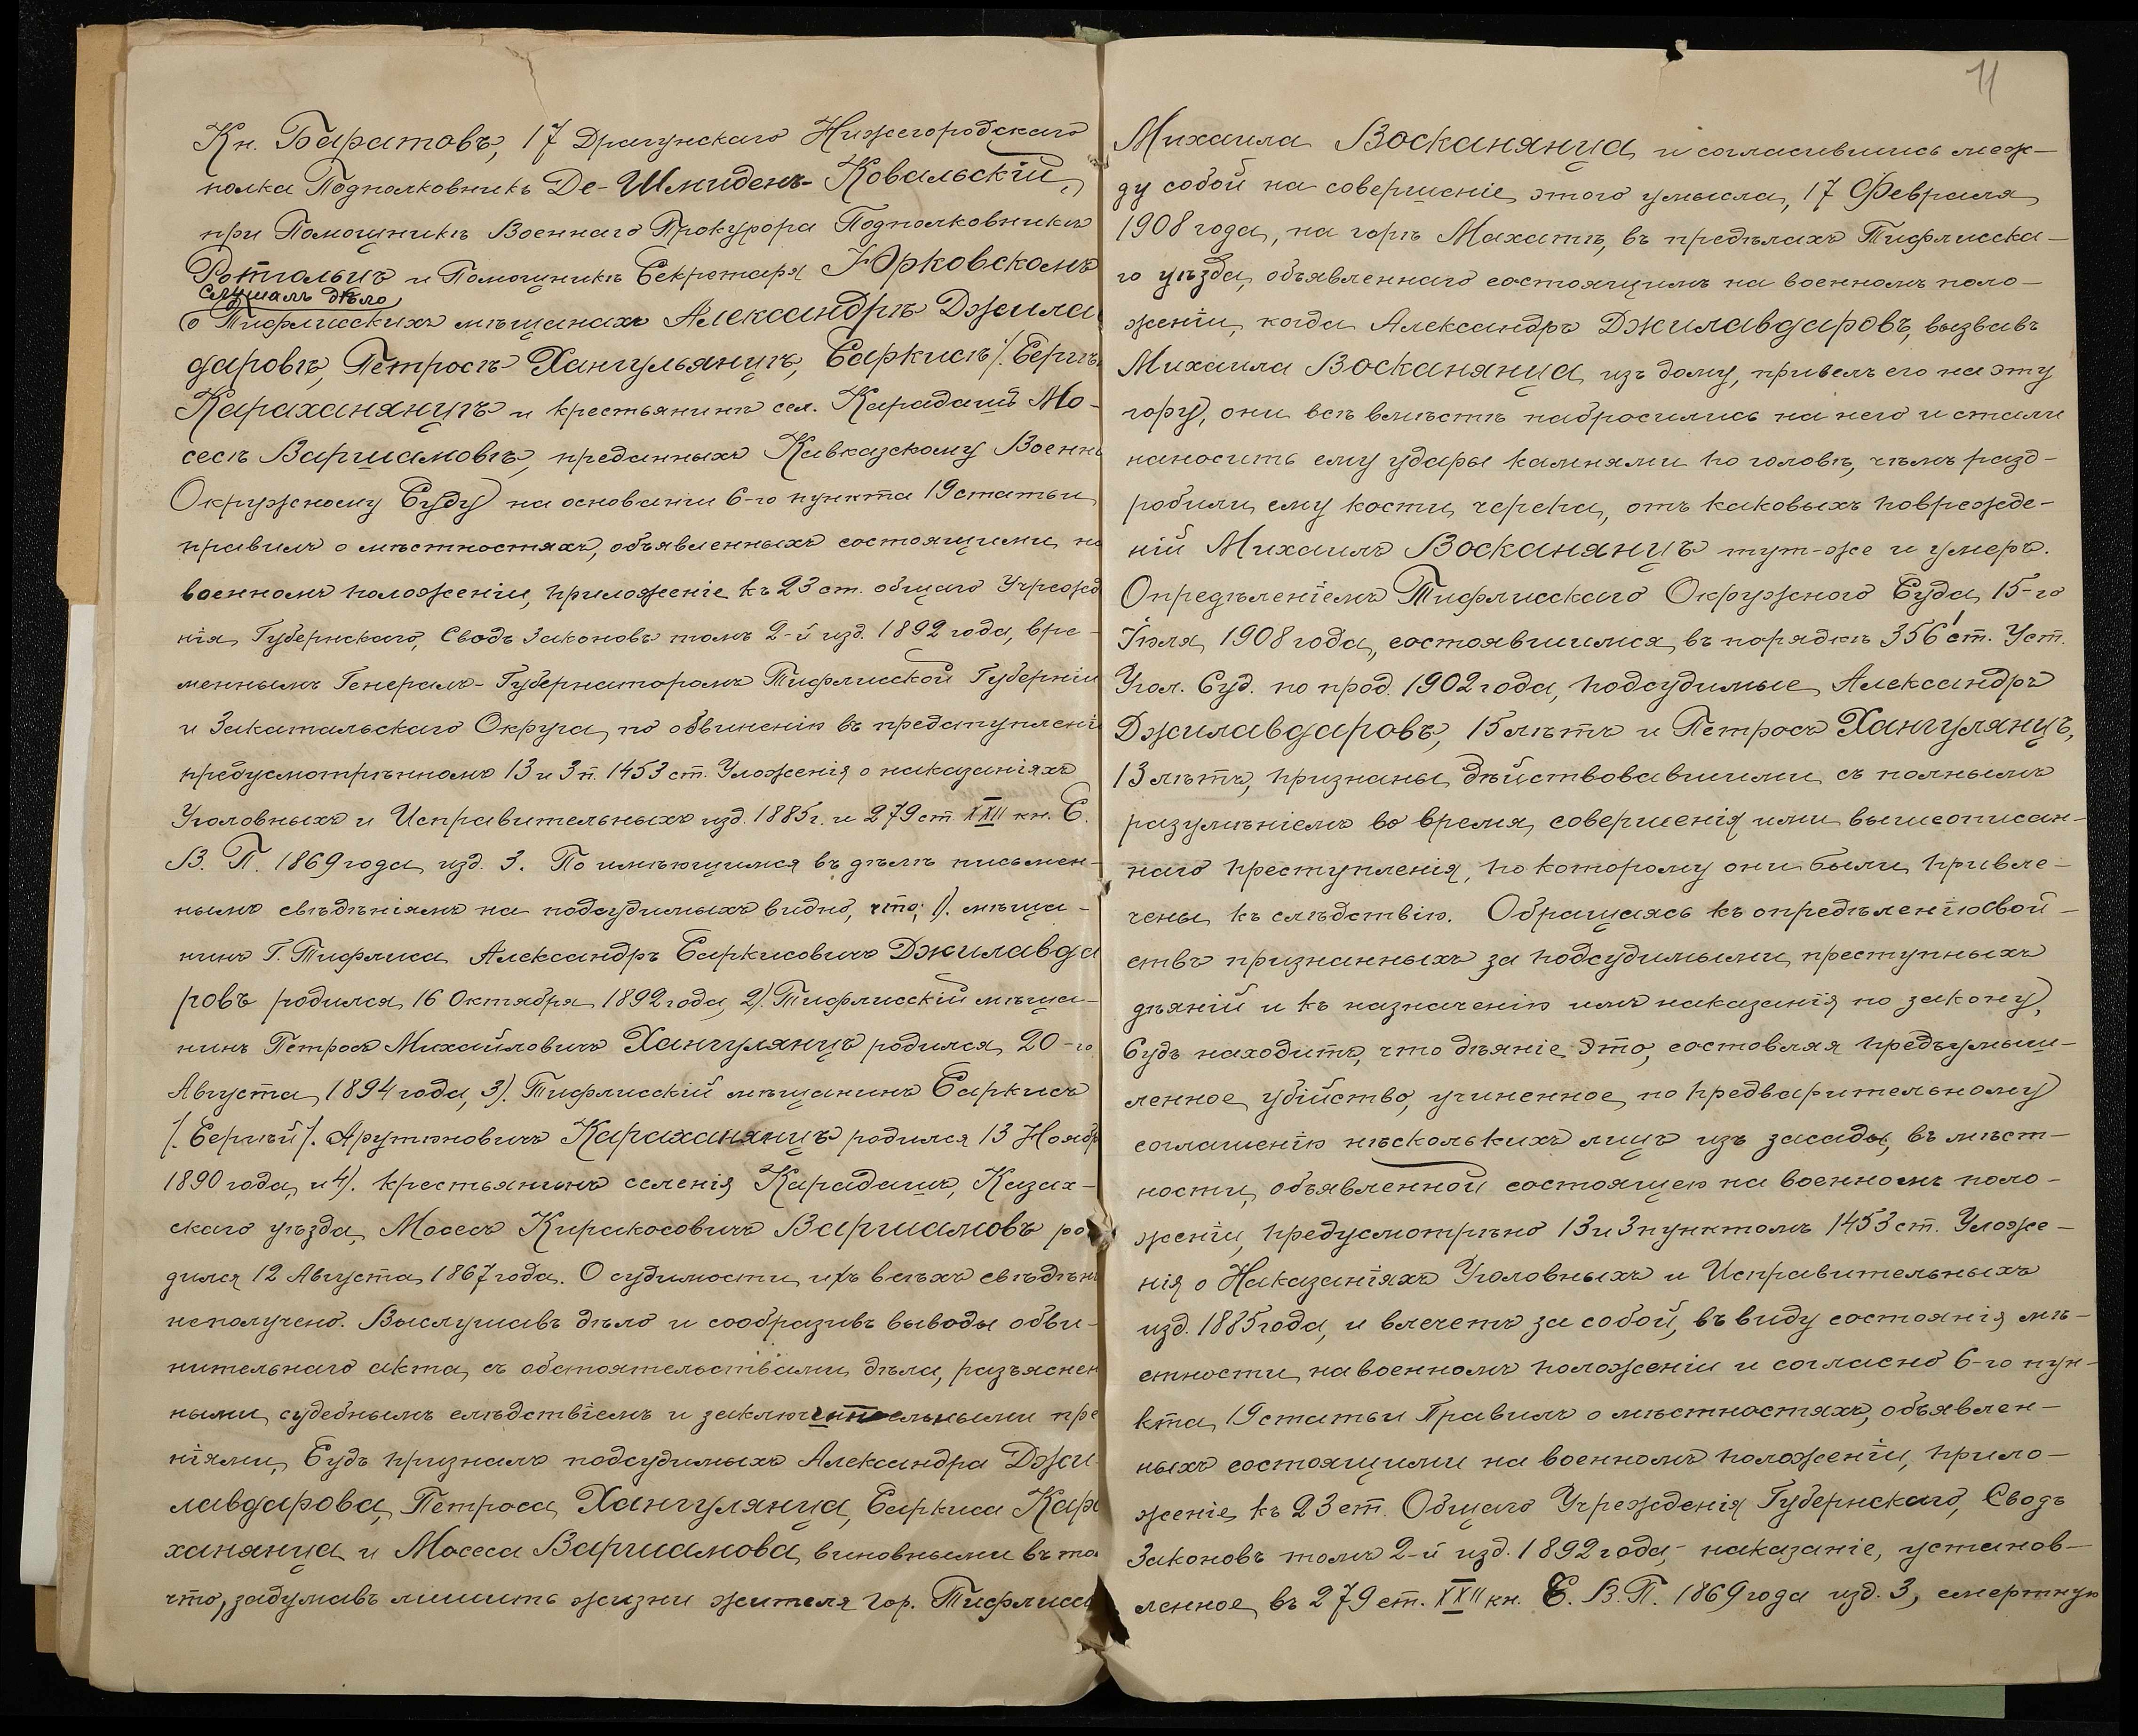 Кн. Баратовъ, 17 Драгунскаго Нижегородскаго
полка Подполковникъ Де-Шмиденъ-Ковальскій,
при Помощникѣ Военнаго Прокурора Подполковникѣ
и Помощникѣ Секретаря Юрковскомъ
слушалъ дѣло
о Тифлисскихъ мѣщанахъ Александрѣ Джилав
даровѣ, Петросѣ Хангульянцѣ, Саркисѣ /. Сергѣ
Караханянцѣ и крестьянинѣ сел. Карадашъ Мо-
сесѣ Варшамовѣ, преданныхъ Кавказскому Военно
Окружному Суду на основаніи 6-го пункта 19 статьи
правилъ о мѣстностяхъ, объявленныхъ состоящими на
военномъ положеніи, приложеніе къ 23 ст. общаго Учрежд
нія Губернскаго, Сводъ Законовъ томъ 2-й изд. 1892 года, вре-
меннымъ Генералъ-Губернаторомъ Тифлисской Губерніи
и Закатальскаго Округа, по обвиненію въ преступлені
предусмотрѣнномъ 13 и 3 п. 1453 ст. Уложенія о наказаніяхъ
Уголовныхъ и Исправительныхъ изд. 1885 г. и 279 ст. XXII кн. С.
В. П. 1869 года изд. 3. По имѣющимся въ дѣлѣ письмен-
нымъ свѣдѣніямъ на подсудимыхъ видно, что; 1). мѣща-
нинъ Г. Тифлиса Александръ Саркисовичъ Джилавда
ровъ родился 16 Октября 1892 года, 2). Тифлисскій мѣща-
нинъ Петросъ Михайловичъ Хангулянцъ родился 20-го
Августа 1894 года, 3). Тифлисскій мѣщанинъ Саркисъ
/. Сергѣй /. Арутюновичъ Караханянцъ родился 13 Ноябр
1890 года и 4). крестьянинъ селенія Карадашъ, Казах-
скаго уѣзда, Мосесъ Киракосовичъ Варшамовъ ро
дился 12 Августа 1867 года. О судимости ихъ всѣхъ свѣдѣн
неполучено. Выслушавъ дѣло и сообразивъ выводы обви-
нительнаго акта съ обстоятельствами дѣла, разъяснен
ными судебнымъ слѣдствіемъ и заключительными пре
ніями, Судъ призналъ подсудимыхъ Александра Джи
лавдарова, Петроса Хангулянца, Саркиса Кара
ханянца и Мосеса Варшамова виновными въ то
что, задумавъ лишить жизни жителя гор. Тифлиса
11
Михаила Восканянца и согласившись меж-
ду собой на совершеніе этого умысла, 17 Февраля
1908 года, на горѣ Махатѣ, въ предѣлахъ Тифлисска-
го уѣзда, объявленнаго состоящимъ на военномъ поло-
женіи, когда Александръ Джилавдаровъ, вызвавъ
Михаила Восканянца изъ дому, привелъ его на эту
гору, они всѣ вмѣстѣ набросились на него и стали
наносить ему удары камнями по головѣ, чѣмъ разд-
робили ему кости черепа, отъ каковыхъ поврежде-
ній Михаилъ Восканянцъ тут-же и умеръ.
Опредѣленіемъ Тифлисскаго Окружного Суда 15-го
Іюля 1908 года, состоявшимся въ порядкѣ 356¹ ст. Уст.
Угол. Суд. по прод. 1902 года, подсудимые Александръ
Джилавдаровъ, 15 лѣтъ и Петросъ Хангулянцъ,
13 лѣтъ, признаны дѣйствовавшими съ полнымъ
разумѣніемъ во время совершенія ими вышеописан-
наго преступленія, по которому они были привле-
чены къ слѣдствію. Обращаясь къ опредѣленію свой-
ствъ признанныхъ за подсудимыми преступныхъ
дѣяній и къ назначенію имъ наказанія по закону,
Судъ находитъ, что дѣяніе это, составляя предъумыш-
ленное убійство, учиненное по предварительному
соглашенію нѣсколькихъ лицъ изъ засады, въ мѣст-
ности, объявленной состоящею на военномъ поло-
женіи, предусмотрѣно 13 и 3 пунктомъ 1453 ст. Уложе-
нія о Наказаніяхъ Уголовныхъ и Исправительныхъ
изд. 1885 года, и влечетъ за собой, въ виду состоянія мѣ-
стности на военномъ положеніи и согласно 6-го пун-
кта 19 статьи Правилъ о мѣстностяхъ, объявлен-
ныхъ состоящими на военномъ положеніи, прило-
женіе къ 23 ст. Общаго Учрежденія Губернскаго, Сводъ
Законовъ томъ 2-й изд. 1892 года,- наказаніе, установ-
ленное въ 279 ст. XXII кн. С. В. П. 1869 года изд. 3, смертную